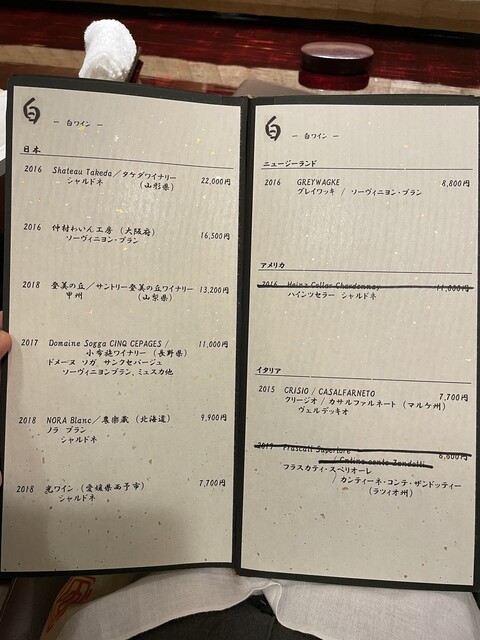 白
― 白ワイン ―
日本
2016 Shateau Takeda／タケダワイナリー 22,000円
シャルドネ （山形県）
2016 仲村わいん工房（大阪府） 16,500円
ソーヴィニヨン・ブラン
2018 登美の丘／サントリー登美の丘ワイナリー 13,200円
甲州 （山梨県）
2017 Domaine Sogga CINQ CEPAGES／ 11,000円
小布施ワイナリー（長野県）
ドメーヌ ソガ サンクセパージュ
ソーヴィニヨンブラン、ミュスカ他
2018 NORA Blanc／農楽蔵（北海道） 9,900円
ノラ ブラン
シャルドネ
2018 光ワイン（愛媛県西予市） 7,700円
シャルドネ
白
― 白ワイン ―
ニュージーランド
2016 GREYWAGKE 8,800円
グレイワッキ / ソーヴィニヨン・ブラン
アメリカ
2016 Heinz Cellar Chardonnay 11,000円
ハインツセラー シャルドネ
イタリア
2015 CRISIO / CASALFARNETO 7,700円
クリージオ / カサルファルネート（マルケ州）
ヴェルデッキオ
2017 Frascati Superiore 6,600円
/ Cantina conte Zandotti
フラスカティ・スペリオーレ
/ カンティーネ・コンテ・ザンドッティー
（ラツィオ州）